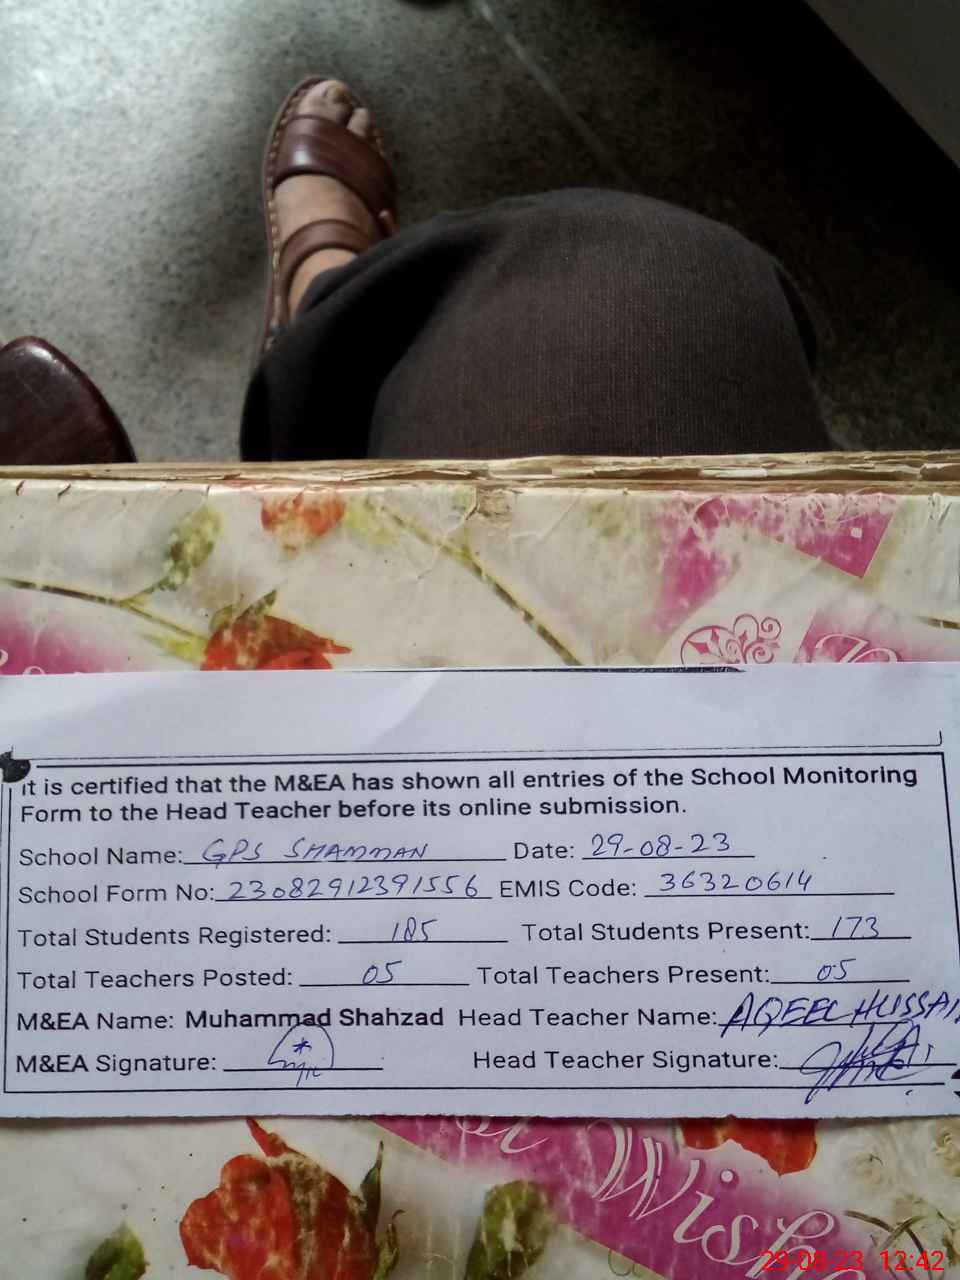 It is certified that the M&EA has shown all entries of the School Monitoring
Form to the Head Teacher before its online submission.
School Name: GPS SHAMMAN Date: 29-08-23
School Form No: 23082912391556 EMIS Code: 36320614
Total Students Registered: 185 Total Students Present: 173
Total Teachers Posted: 05 Total Teachers Present: 05
M&EA Name: Muhammad Shahzad Head Teacher Name: AQEEL HUSSAI
M&EA Signature: Head Teacher Signature:
Wish
29-08-23 12:42